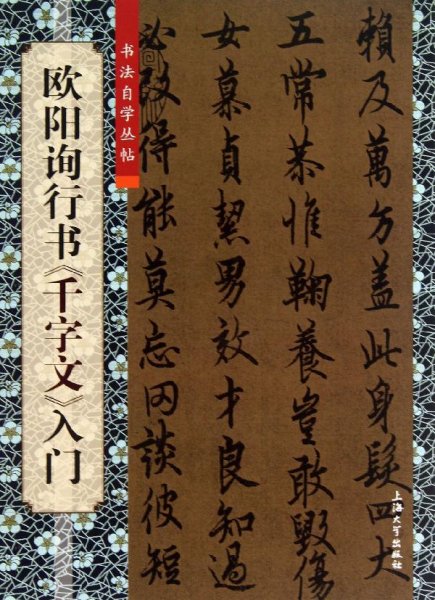 书法自学丛帖
欧阳询行书《千字文》入门
賴及萬方盖此身髮四大
五常恭惟鞠養豈敢毀傷
女慕貞絜男效才良知過
必改得能莫忘罔談彼短
上海大学出版社